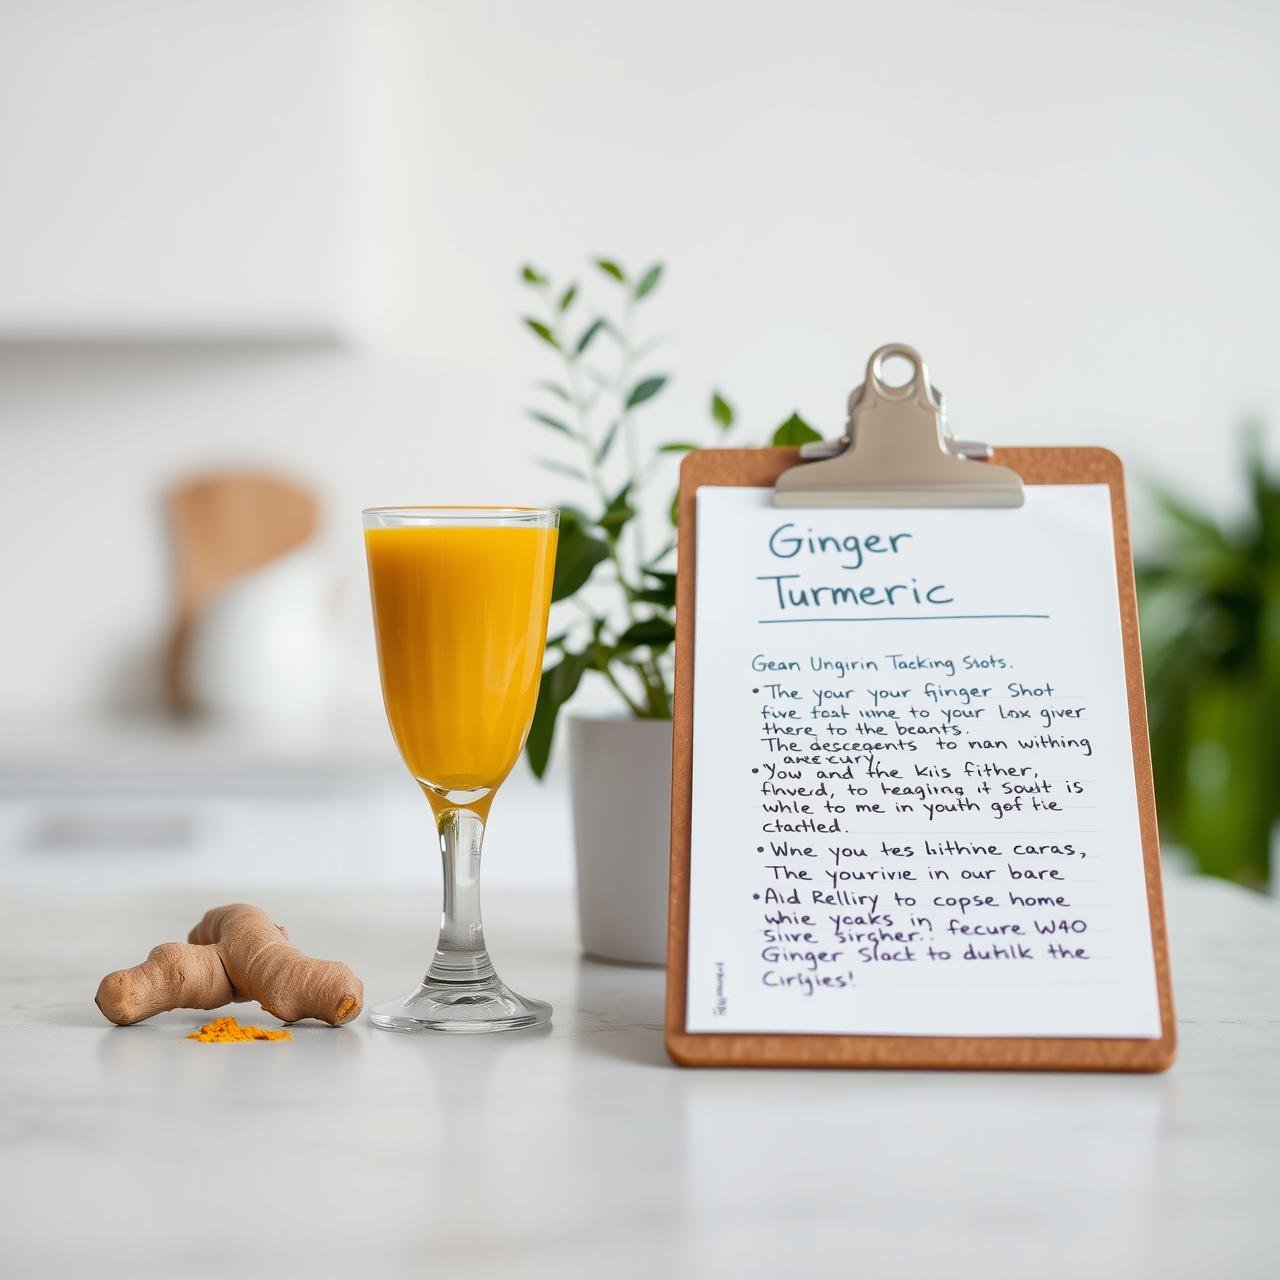 Ginger
Turmeric
Gean Ungirin Tacking Shots.
• The your your Ginger Shot
five to your Lox giver
there to the beants.
The descegents to nan withing
• You and the kis fither,
to heagiing it Soult is
while to me in youth gof tie
ctactled.
• Wne you tes hithine caras,
The yourivie in our bare
• Aid Relliry to copse home
whie yoaks in
Siive sirgher.. fecure W40
Ginger Slact to duhilk the
Cirigies!